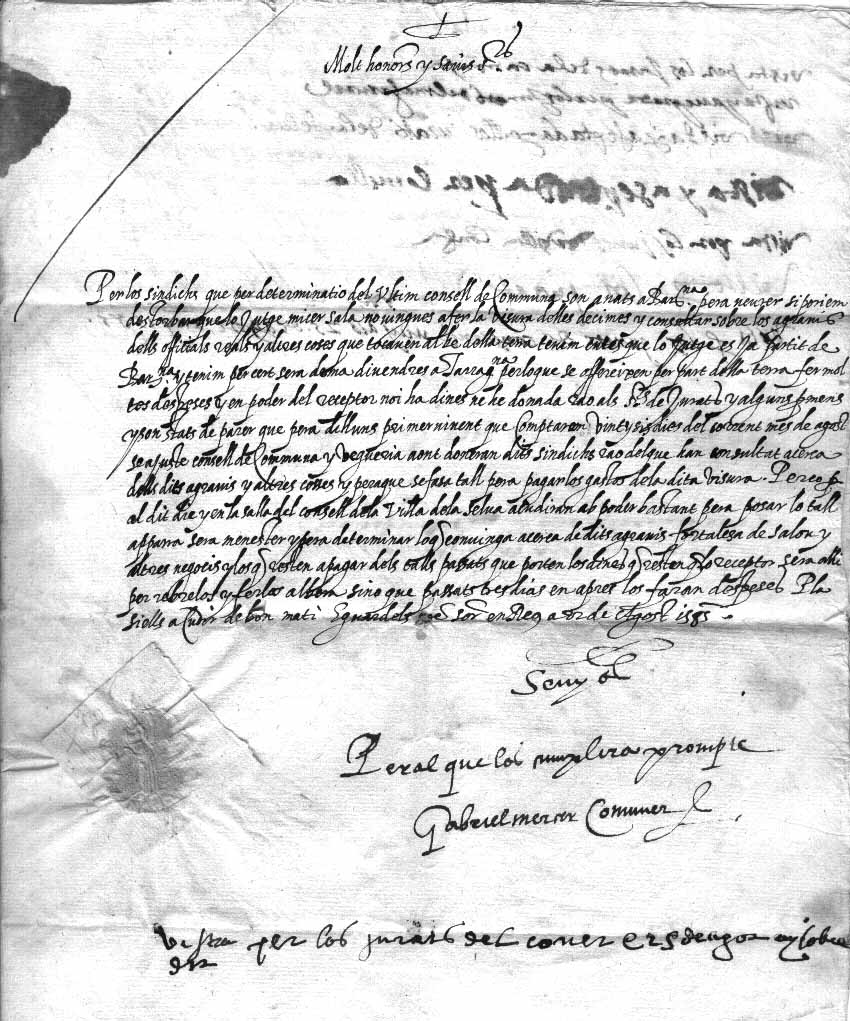 Molt honors y savis Srs
Per los sindichs que per determinatio del Ultim consell de Comuna son anats a Barna pera veurer si porien
destorbar que lo Jutge micer Sala no vingues a fer la visura de les decimes y consultar sobre los agravis
dells officials reals y altres coses que tocaven al be de la terra tenim entes que lo Jutge es ja partit de
Barna y tenim per cert sera dema divendres a Tarragna per lo que se offereixen per part de la terra fer mol
tos despeses y en poder del receptor noi ha dines ne he donada rao als Srs de Jurats y alguns promens
y son stats de parer que pera dilluns primer vinent que comptarem vint y sis dies del corrent mes de agost
se ajuste consell de Comuna y vegueria aont donaran dits sindichs rao del que han consultat acerca
dells dits agravis y altres coses y pera que se fasa tall pera pagar los gastos de la dita visura. Perço pr
al dit die y en la salla del consell de la Villa de la Selva acudiran ab poder bastant pera posar lo tall
apparra sera menester y pera determinar loq convinga acerca de dits agravis fortalesa de Salou y
altres negocis y los q resten a pagar dels talls passats que porten los dines q resten q lo receptor sera alli
per rebrelos y ferlos albara sino que passats tres dias en apres los faran despeses Pla
siells acudir de bon mati E guardels nre Sor en Reus a 22 de Agost 1585.
Senyors
Per al que los cumplira prompte
Gabriel mercer Comuner
Vista per los jurats del
dit